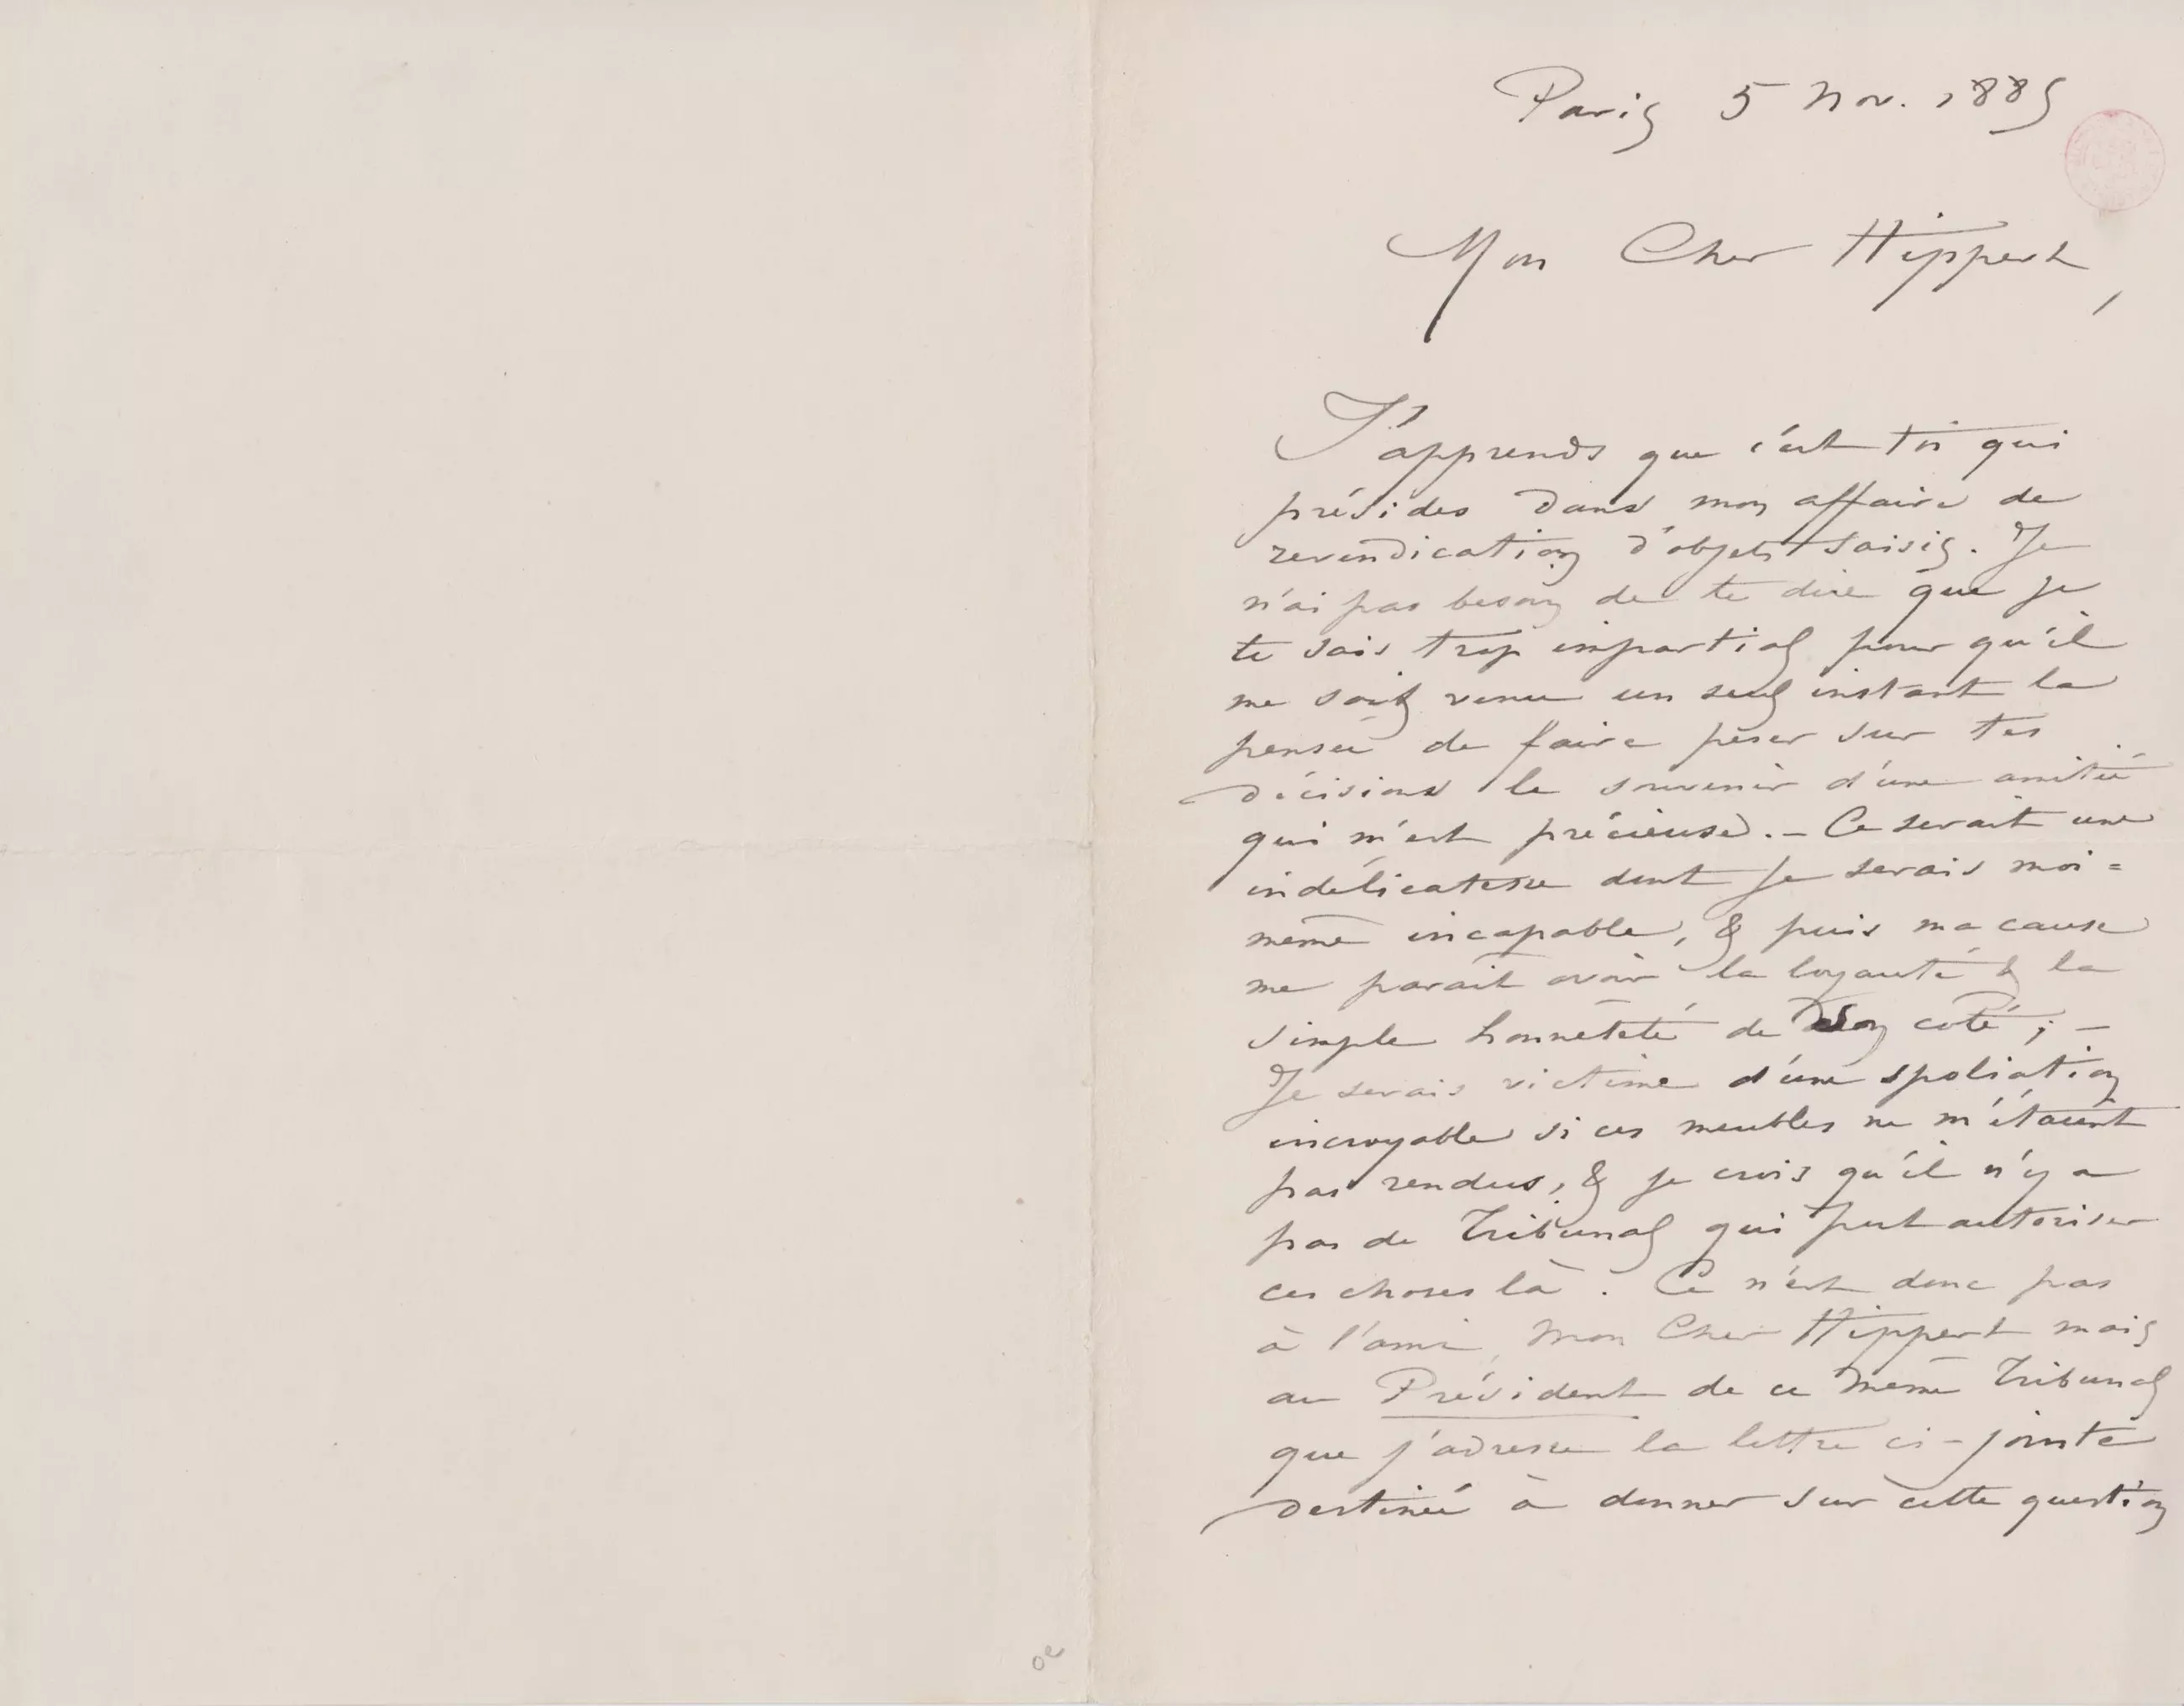 Paris 5 Nov. 1885
Mon Cher Hippert,
J'apprends que c'est toi qui
présides dans mon affaire de
revendication d'objets saisis. Je
n'ai pas besoin de te dire que je
te sais trop impartial pour qu'il
me soit venu un seul instant la
pensée de faire peser sur tes
décisions le souvenir d'une amitié
qui m'est précieuse. – Ce serait une
indélicatesse dont je serais moi=
même incapable, & puis ma cause
me parait avoir la loyauté & la
simple honnêteté de son coté ; –
Je serais victime d'une spoliation
incroyable si ces meubles ne m'étaient
pas rendus, & je crois qu'il n'y a
pas de Tribunal qui peut autoriser
ces choses là. Ce n'est donc pas
à l'ami, mon Cher Hippert mais
au Président de ce même Tribunal
que j'adresse la lettre ci-jointe
destinée à donner sur cette question